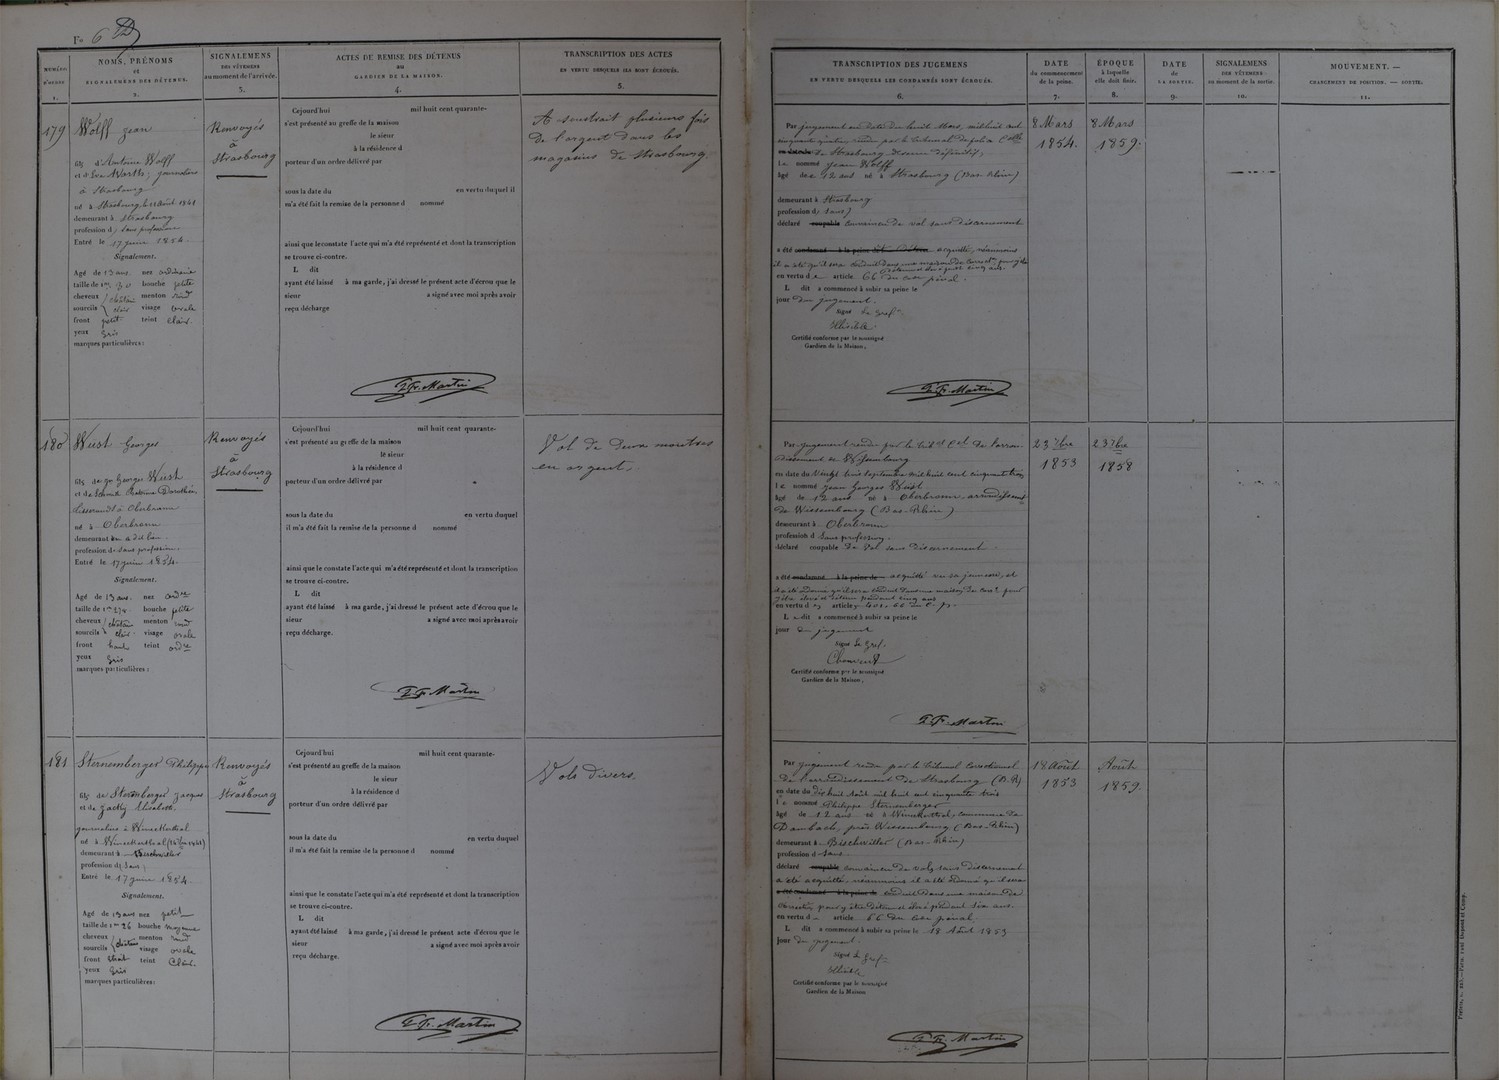 Fo 6
NUMÉRO
D'ORDRE
1.
NOMS, PRÉNOMS
ET
SIGNALEMENS DES DÉTENUS.
2.
SIGNALEMENS
DES VÊTEMENS
au moment de l'arrivée.
3.
ACTES DE REMISE DES DÉTENUS
AU
GARDIEN DE LA MAISON.
4.
TRANSCRIPTION DES ACTES
EN VERTU DESQUELS ILS SONT ÉCROUÉS.
5.
TRANSCRIPTION DES JUGEMENS
EN VERTU DESQUELS LES CONDAMNÉS SONT ÉCROUÉS.
6.
DATE
du commencement
de la peine.
7.
ÉPOQUE
à laquelle
elle doit finir.
8.
DATE
de
LA SORTIE.
9.
SIGNALEMENS
DES VÊTEMENS
au moment de la sortie.
10.
MOUVEMENT. —
CHANGEMENT DE POSITION. — SORTIE.
11.
179
Wolff Jean
fils d'Antoine Wolff
journaliers
à Strasbourg
né à Strasbourg, le
demeurant à Strasbourg
profession d sans profession
Entré le 17 juin 1854.
Signalement.
Agé de 13 ans. nez ordinaire
taille de 1m, 30 bouche petite
cheveux châtain menton rond
sourcils clair visage ovale
front petit teint clair.
yeux gris
marques particulières :
Renvoyés
à
Strasbourg
Cejourd'hui mil huit cent quarante-
s'est présenté au greffe de la maison
le sieur
à la résidence d
porteur d'un ordre délivré par
sous la date du en vertu duquel il
m'a été fait la remise de la personne d nommé
ainsi que le constate l'acte qui m'a été représenté et dont la transcription
se trouve ci-contre.
L dit
ayant été laissé à ma garde, j'ai dressé le présent acte d'écrou que le
sieur a signé avec moi après avoir
reçu décharge
Martin
A soustrait plusieurs fois
de l'argent dans les
magasins de Strasbourg.
Par jugement en date du huit Mars, mil huit cent
cinquante quatre, rendu par le tribunal de police
de Strasbourg devenu définitif,
le nommé Jean Wolff
âgé de 12 ans né à Strasbourg (Bas-Rhin)
demeurant à Strasbourg
profession d (sans)
déclaré coupable convaincu de vol sans discernement
a été condamné à la peine acquitté, néanmoins
il a été qu'il sera conduit dans une maison de
détenu cinq ans.
en vertu de article 66 du code pénal.
L dit a commencé à subir sa peine le
jour du jugement.
Signé Le Gref.
Illisible.
Certifié conforme par le soussigné
Gardien de la Maison,
Martin
8 Mars
1854.
8 Mars
1859.
180
Wust Georges
fils de Georges Wust
et de Schmidt Dorothée,
à Oberbronn
né à Oberbronn
demeurant au dit lieu
profession de sans profession.
Entré le 17 juin 1854.
Signalement.
Agé de 13 ans. nez ordre
taille de 1m 27c bouche petite
cheveux châtain menton rond
sourcils clair visage ovale
front haut teint ordre
yeux gris
marques particulières :
Renvoyés
à
Strasbourg
Cejourd'hui mil huit cent quarante-
s'est présenté au greffe de la maison
le sieur
à la résidence d
porteur d'un ordre délivré par
sous la date du en vertu duquel
il m'a été fait la remise de la personne d nommé
ainsi que le constate l'acte qui m'a été représenté et dont la transcription
se trouve ci-contre.
L dit
ayant été laissé à ma garde, j'ai dressé le présent acte d'écrou que le
sieur a signé avec moi après avoir
reçu décharge.
Martin
Vol de deux montres
en argent.
Par jugement rendu par le de l'arron-
dissement de Wissembourg
en date du Vingt trois Septembre mil huit cent cinquante trois
le nommé Jean Georges Wust
âgé de 12 ans né à Oberbronn, arrondissement
de Wissembourg (Bas-Rhin)
demeurant à Oberbronn
profession d sans profession.
déclaré coupable de vol sans discernement
a été condamné à la peine de acquitté vu sa jeunesse, et
il a été ordonné qu'il sera conduit dans une maison de
y être élevé et détenu pendant cinq ans
en vertu d articles 401. 66 du C. p.
L dit a commencé à subir sa peine le
jour du jugement
Signé Le Gref.
Certifié conforme par le soussigné
Gardien de la Maison,
Martin
23 7bre
1853
23 7bre
1858
181
Sternemberger Philippe
fils de Sternemberger Jacques
et de Elisabeth.
journaliers à
demeurant à Bischwiller
profession d Sans.
Entré le 17 juin 1854.
Signalement.
Agé de 13 ans nez petit
taille de 1m 26 bouche moyenne
cheveux châtain menton rond
sourcils visage ovale
front étroit teint Clair.
yeux gris
marques particulières :
Renvoyés
à
Strasbourg
Cejourd'hui mil huit cent quarante-
s'est présenté au greffe de la maison
le sieur
à la résidence d
porteur d'un ordre délivré par
sous la date du en vertu duquel
il m'a été fait la remise de la personne d nommé
ainsi que le constate l'acte qui m'a été représenté et dont la transcription
se trouve ci-contre.
L dit
ayant été laissé à ma garde, j'ai dressé le présent acte d'écrou que le
sieur a signé avec moi après avoir
reçu décharge.
Martin
Vols divers.
Par jugement rendu par le tribunal Correctionnel
de l'arrondissement de Strasbourg (B. R)
en date du Dix huit Août mil huit cent cinquante trois
le nommé Philippe Sternemberger
âgé de 12 ans né à commune de
Dambach, près Wissembourg (Bas-Rhin)
demeurant à Bischwiller (Bas-Rhin)
profession d Sans.
déclaré coupable convaincu de vols sans discernement
a été acquitté, néanmoins il a été ordonné qu'il sera
a été condamné à la peine de conduit dans une maison de
Correction pour y être détenu et élevé pendant Six ans.
en vertu d article 66 du Code pénal.
L dit a commencé à subir sa peine le 18 Août 1853
jour du jugement.
Signé Le Gref
Illisible
Certifié conforme par le soussigné
Gardien de la Maison
Martin
18 Août
1853
Août
1859.